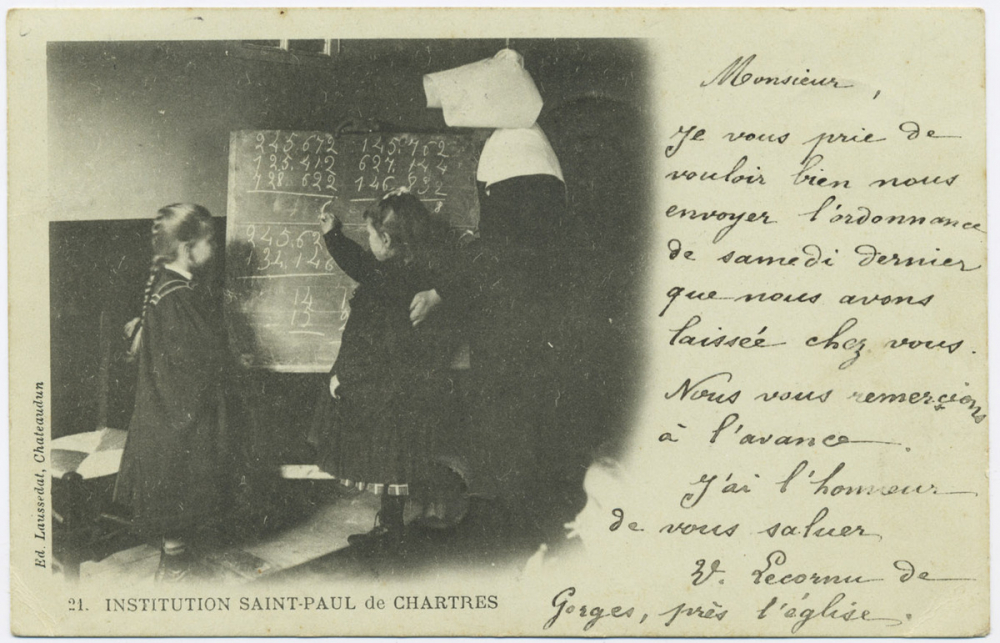 245.672 145.752
125.412 627.144
728.622 146.832
6 8
245.62
134.146
14
13
Monsieur,
Je vous prie de
vouloir bien nous
envoyer l'ordonnance
de samedi dernier
que nous avons
laissée chez vous.
Nous vous remercions
à l'avance.
J'ai l'honneur
de vous saluer
V. Lecornu de
Gorges, près l'église.
Ed. Laussedat, Chateaudun
21. INSTITUTION SAINT-PAUL de CHARTRES